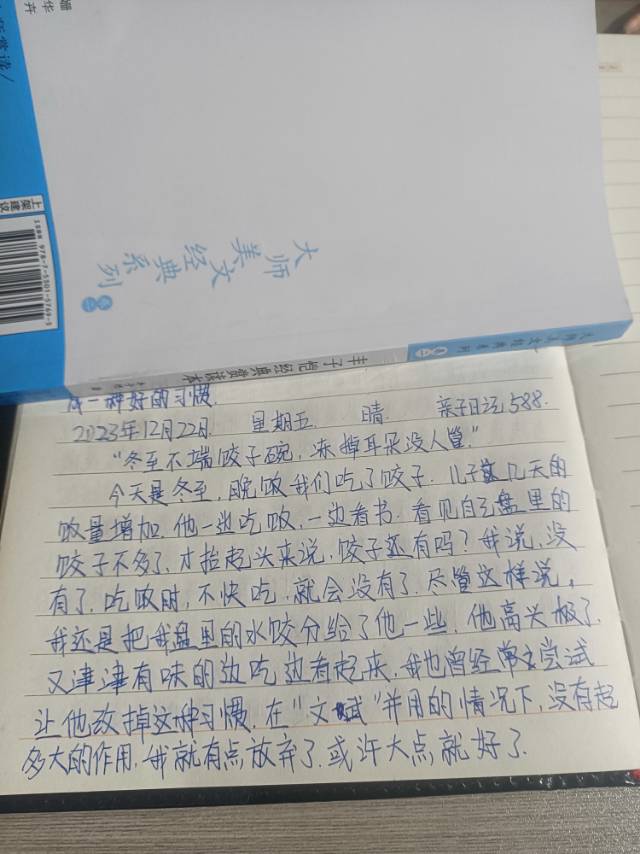 上架建议
大师
美文
经典
系列
丰子恺经典赏读本
成一种好的习惯
2023年12月22日. 星期五 晴. 亲子日记588.
“冬至不端饺子碗,冻掉耳朵没人管.”
今天是冬至,晚饭我们吃了饺子.儿子这几天的
饭量增加.他一边吃饭,一边看书.看见自己盘里的
饺子不多了.才抬起头来说,饺子还有吗?我说,没
有了.吃饭时,不快吃.就会没有了.尽管这样说,
我还是把我盘里的水饺分给了他一些.他高兴极了.
又津津有味的边吃边看起来.我也曾经常尝试
让他改掉这种习惯.在“文武”并用的情况下,没有起
多大的作用.我就有点放弃了.或许大点就好了.